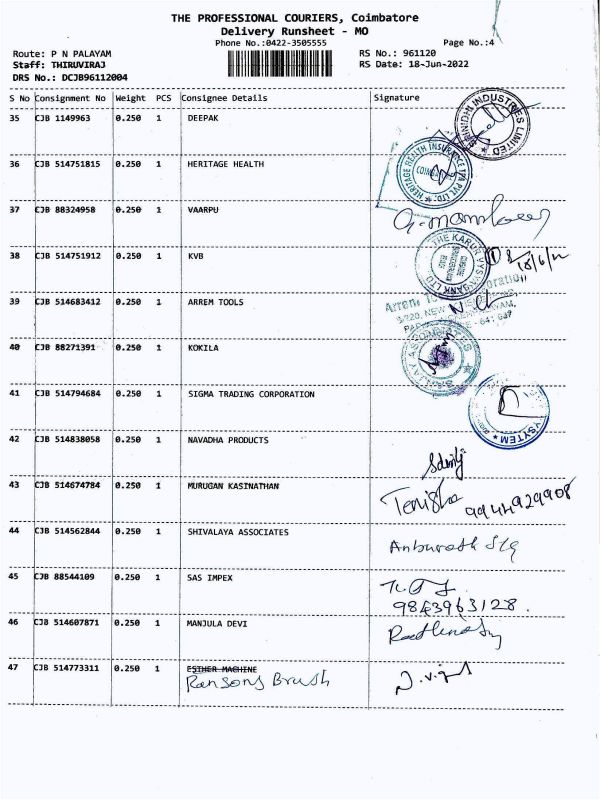 THE PROFESSIONAL COURIERS, Coimbatore
Delivery Runsheet - MO
Phone No.:0422-3505555 Page No.:4
Route: P N PALAYAM RS No.: 961120
Staff: THIRUVIRAJ RS Date: 18-Jun-2022
DRS No.: DCJB96112004
S No Consignment No Weight PCS Consignee Details Signature
35 CJB 1149963 0.250 1 DEEPAK
INDUSTRIES LIMITED
36 CJB 514751815 0.250 1 HERITAGE HEALTH
HERITAGE HEALTH INSURANCE TPA PVT LTD.
37 CJB 88324958 0.250 1 VAARPU
38 CJB 514751912 0.250 1 KVB
THE KARUR VYSYA BANK LTD
18/6/22
39 CJB 514683412 0.250 1 ARREM TOOLS
Arrem
3/220, NEW
40 CJB 88271391 0.250 1 KOKILA
41 CJB 514794684 0.250 1 SIGMA TRADING CORPORATION
SYTEM
42 CJB 514838058 0.250 1 NAVADHA PRODUCTS
43 CJB 514674784 0.250 1 MURUGAN KASINATHAN
Tenisha 9944929908
44 CJB 514562844 0.250 1 SHIVALAYA ASSOCIATES
45 CJB 88544109 0.250 1 SAS IMPEX
9843963128.
46 CJB 514607871 0.250 1 MANJULA DEVI
47 CJB 514773311 0.250 1 ESTHER MACHINE
Ransons Brush